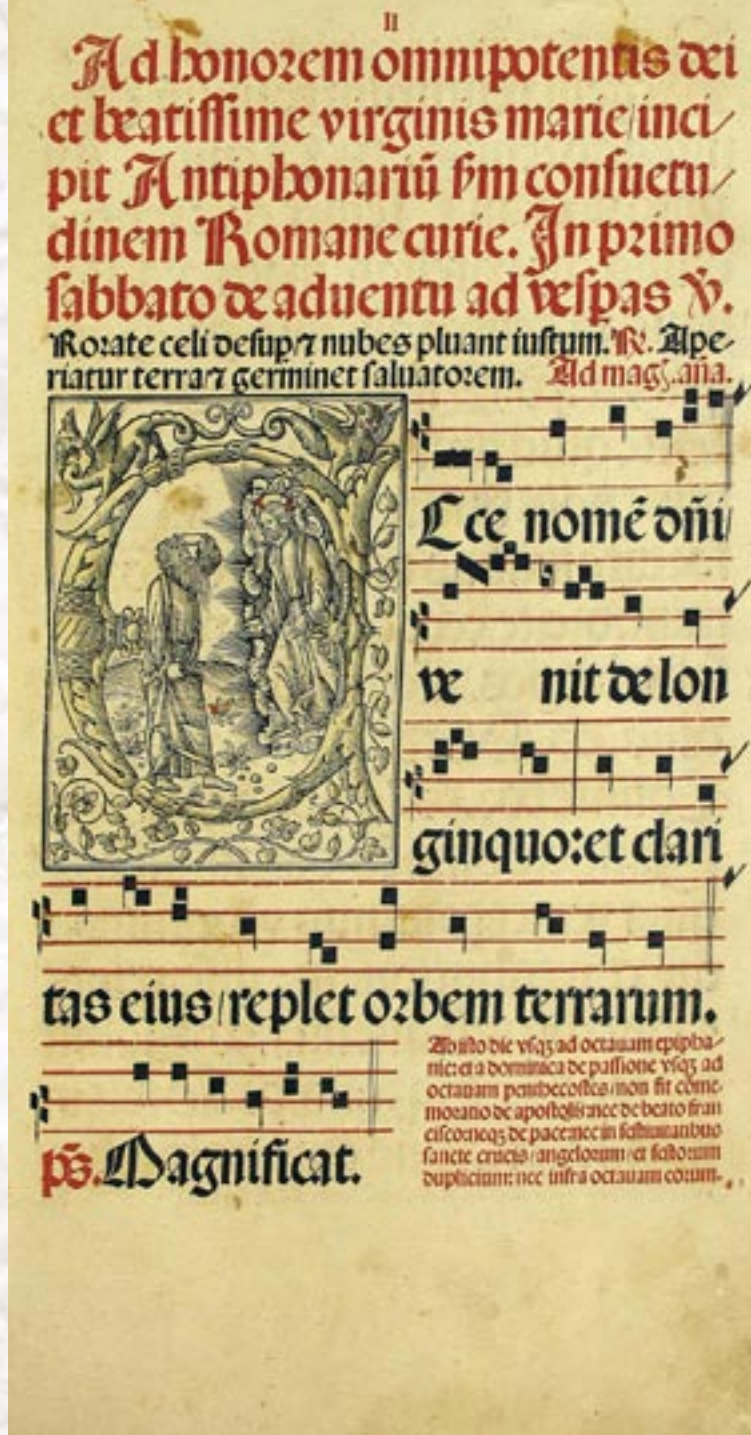 II
Ad honorem omnipotentis dei
et beatissime virginis marie/inci/
pit Antiphonariū ſm consuetu/
dinem Romane curie. In primo
sabbato de aduentu ad vespas ℣.
Rorate celi desup/⁊ nubes pluant iustum. ℟. Ape/
riatur terra/⁊ germinet saluatorem. Ad mag. aña.
Ecce nomē dñi
ve nit de lon
ginquo: et clari
tas eius/replet orbem terrarum.
Ab isto die vsqꝫ ad octauam epipha/
nie: et a dominica de passione vsqꝫ ad
octauam penthecostes/non fit cōme
moratio de apostolis: nec de beato fran
cisco: neqꝫ de pace: nec in festiuitatibus
sancte crucis/angelorum/et festorum
duplicium: nec infra octauam eorum.
ps. Magnificat.